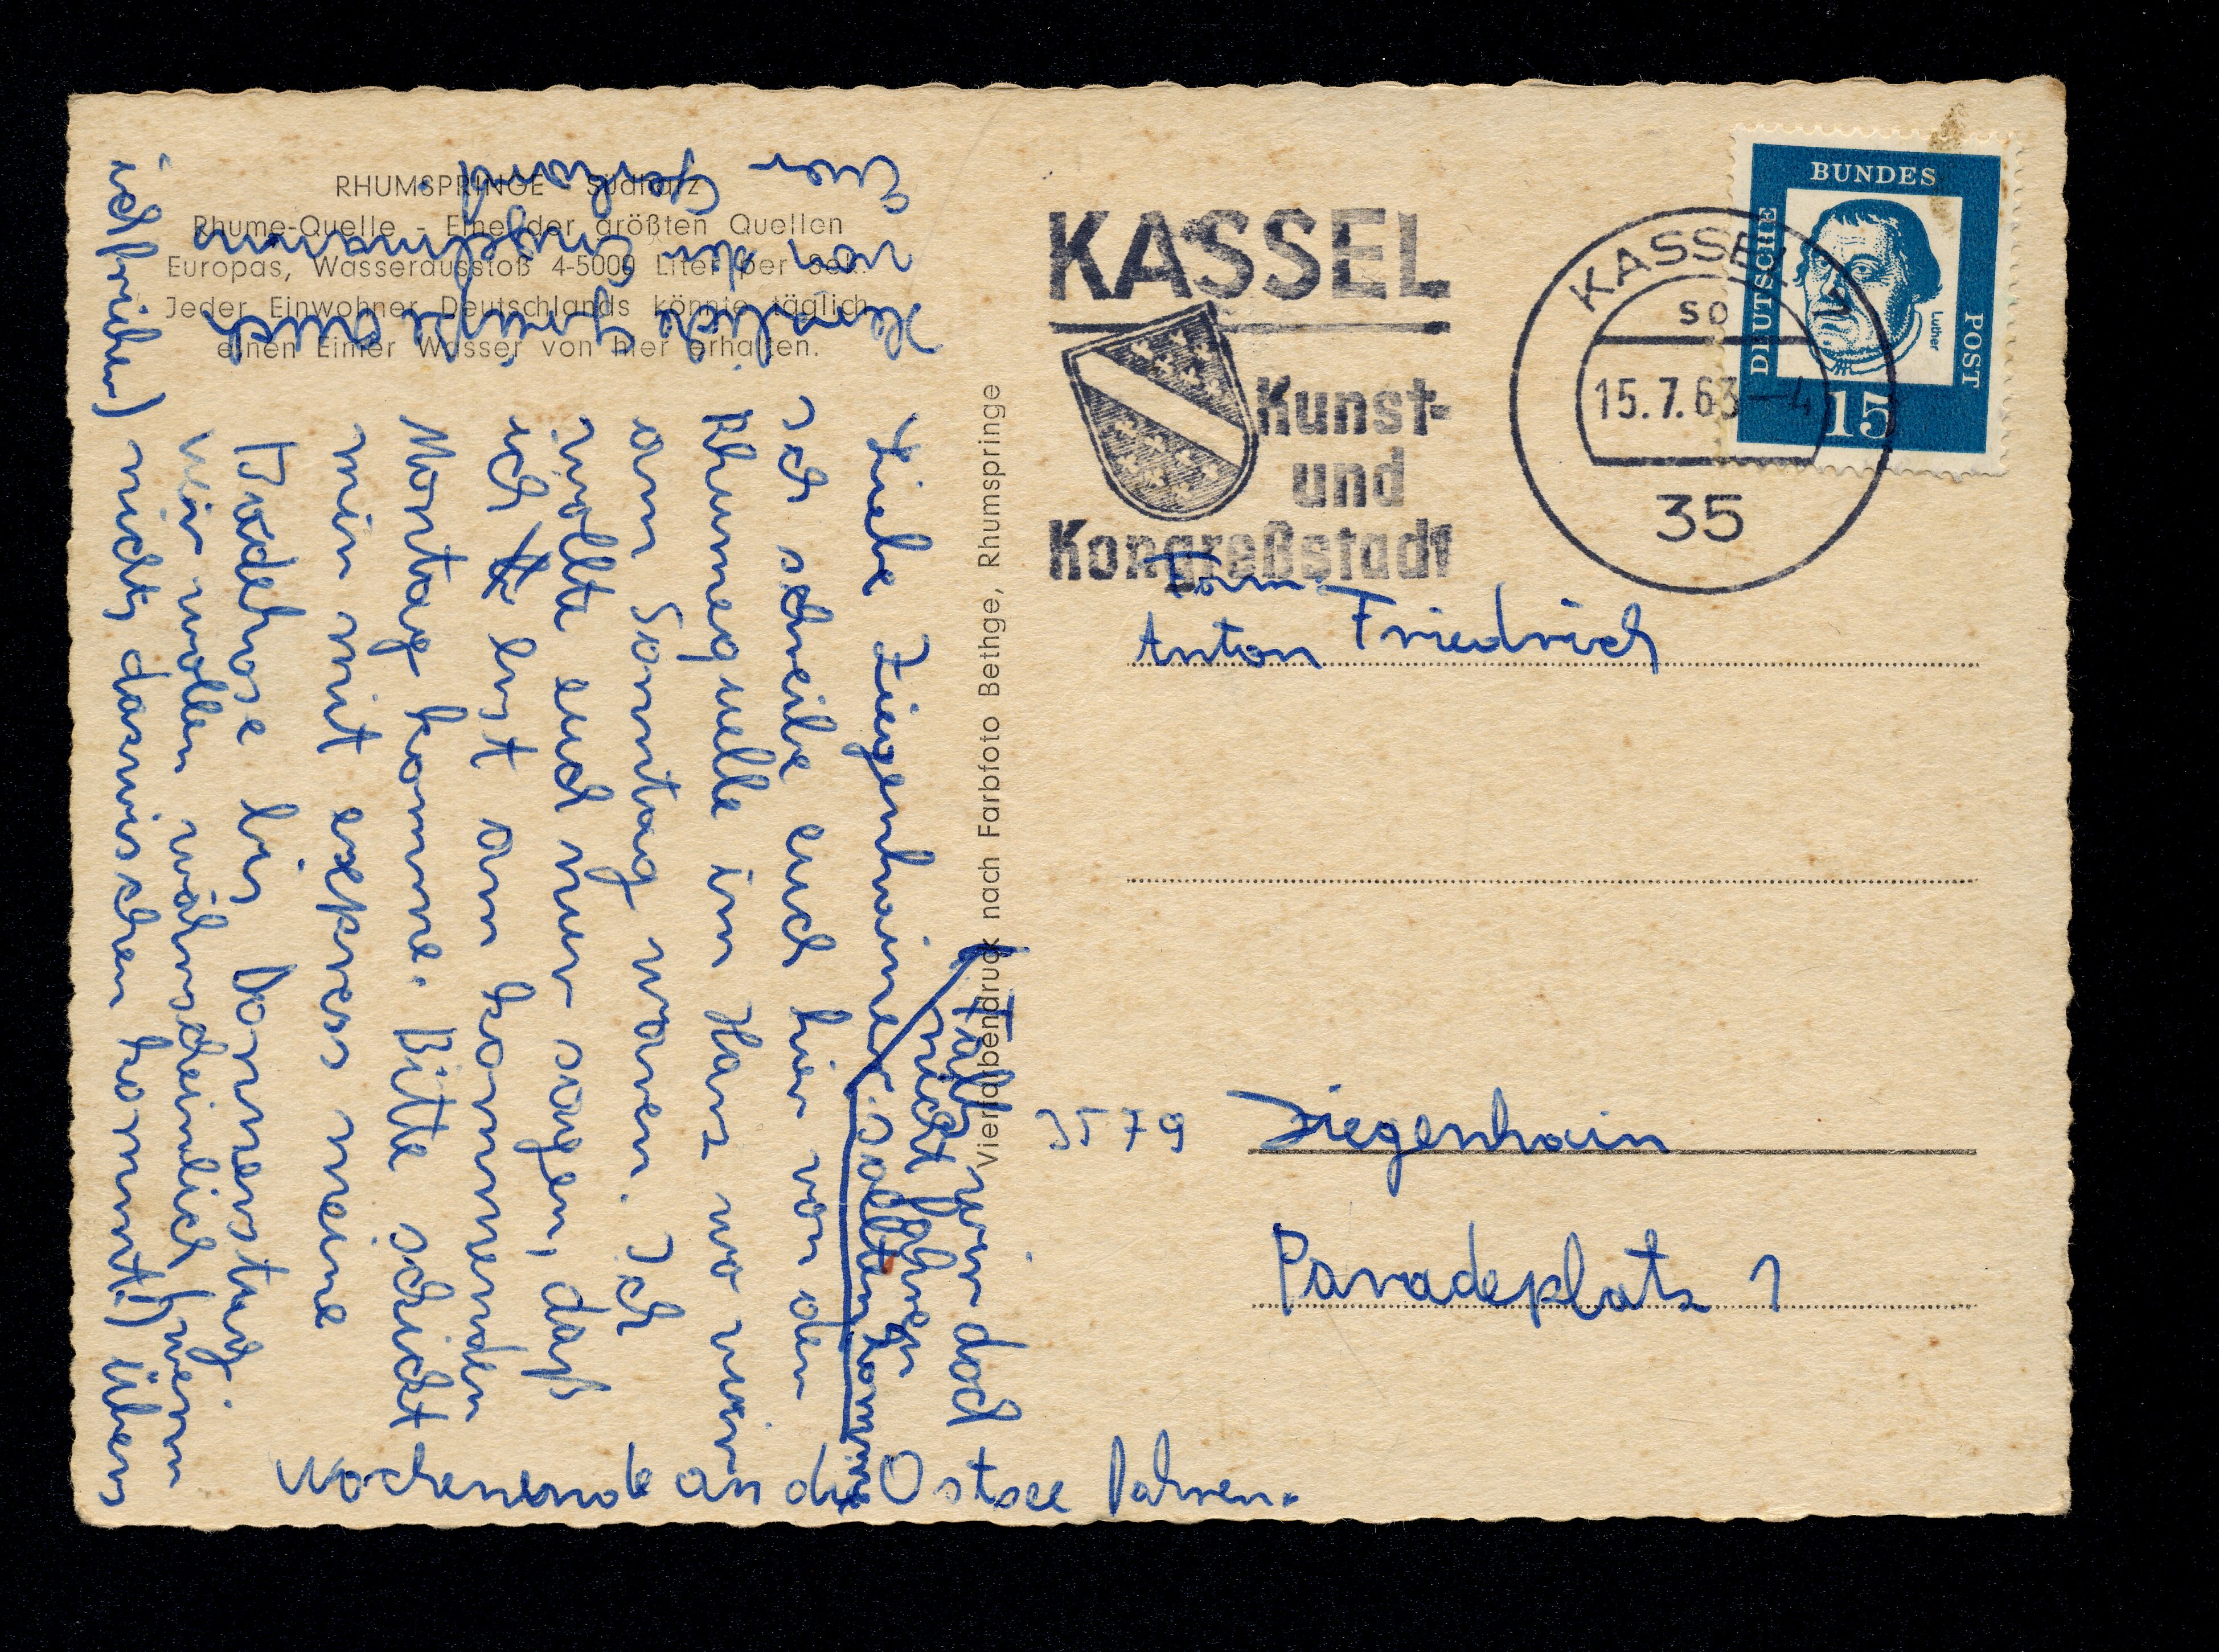 RHUMSPRINGE Südharz
Rhume-Quelle - Eine der größten Quellen
Europas, Wasserausstoß 4-5000 Liter per Sek.
Jeder Einwohner Deutschlands könnte täglich
einen Eimer Wasser von hier erhalten.
Vierfarbendruck nach Farbfoto Bethge, Rhumspringe
Liebe Ziegenhainer
ich schreibe euch hier von den
Rhumequelle im Harz wo wir
am Sonntag waren. Ich
wollte euch nur sagen, daß
ich erst am kommenden
Montag komme. Bitte schickt
mir mit express meine
Badehose bis Donnerstag.
Wir wollen wahrscheinlich (wenn
nichts dazwischen kommt) übers
Wochenende an die Ostsee fahren.
Falls wir doch
nicht fahren
sollten komme
ich früher)
Herzliche Grüße auch
von den Engelmanns
Euer Gerhard
KASSEL
Kunst-
und
Kongreßstadt
KASSEL 7
so
15.7.63-4
35
DEUTSCHE
BUNDES
POST
Luther
15
Fam.
Anton Friedrich
3579 Ziegenhain
Paradeplatz 1